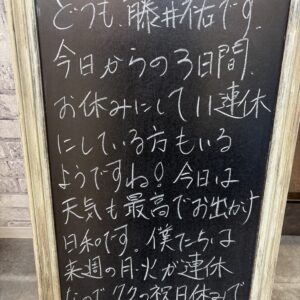 どうも、藤井祐です。
今日からの3日間、
お休みにして11連休
にしている方もいる
ようですね!今日は
天気も最高でお出かけ
日和です。僕たちは
来週の月・火が連休
なので